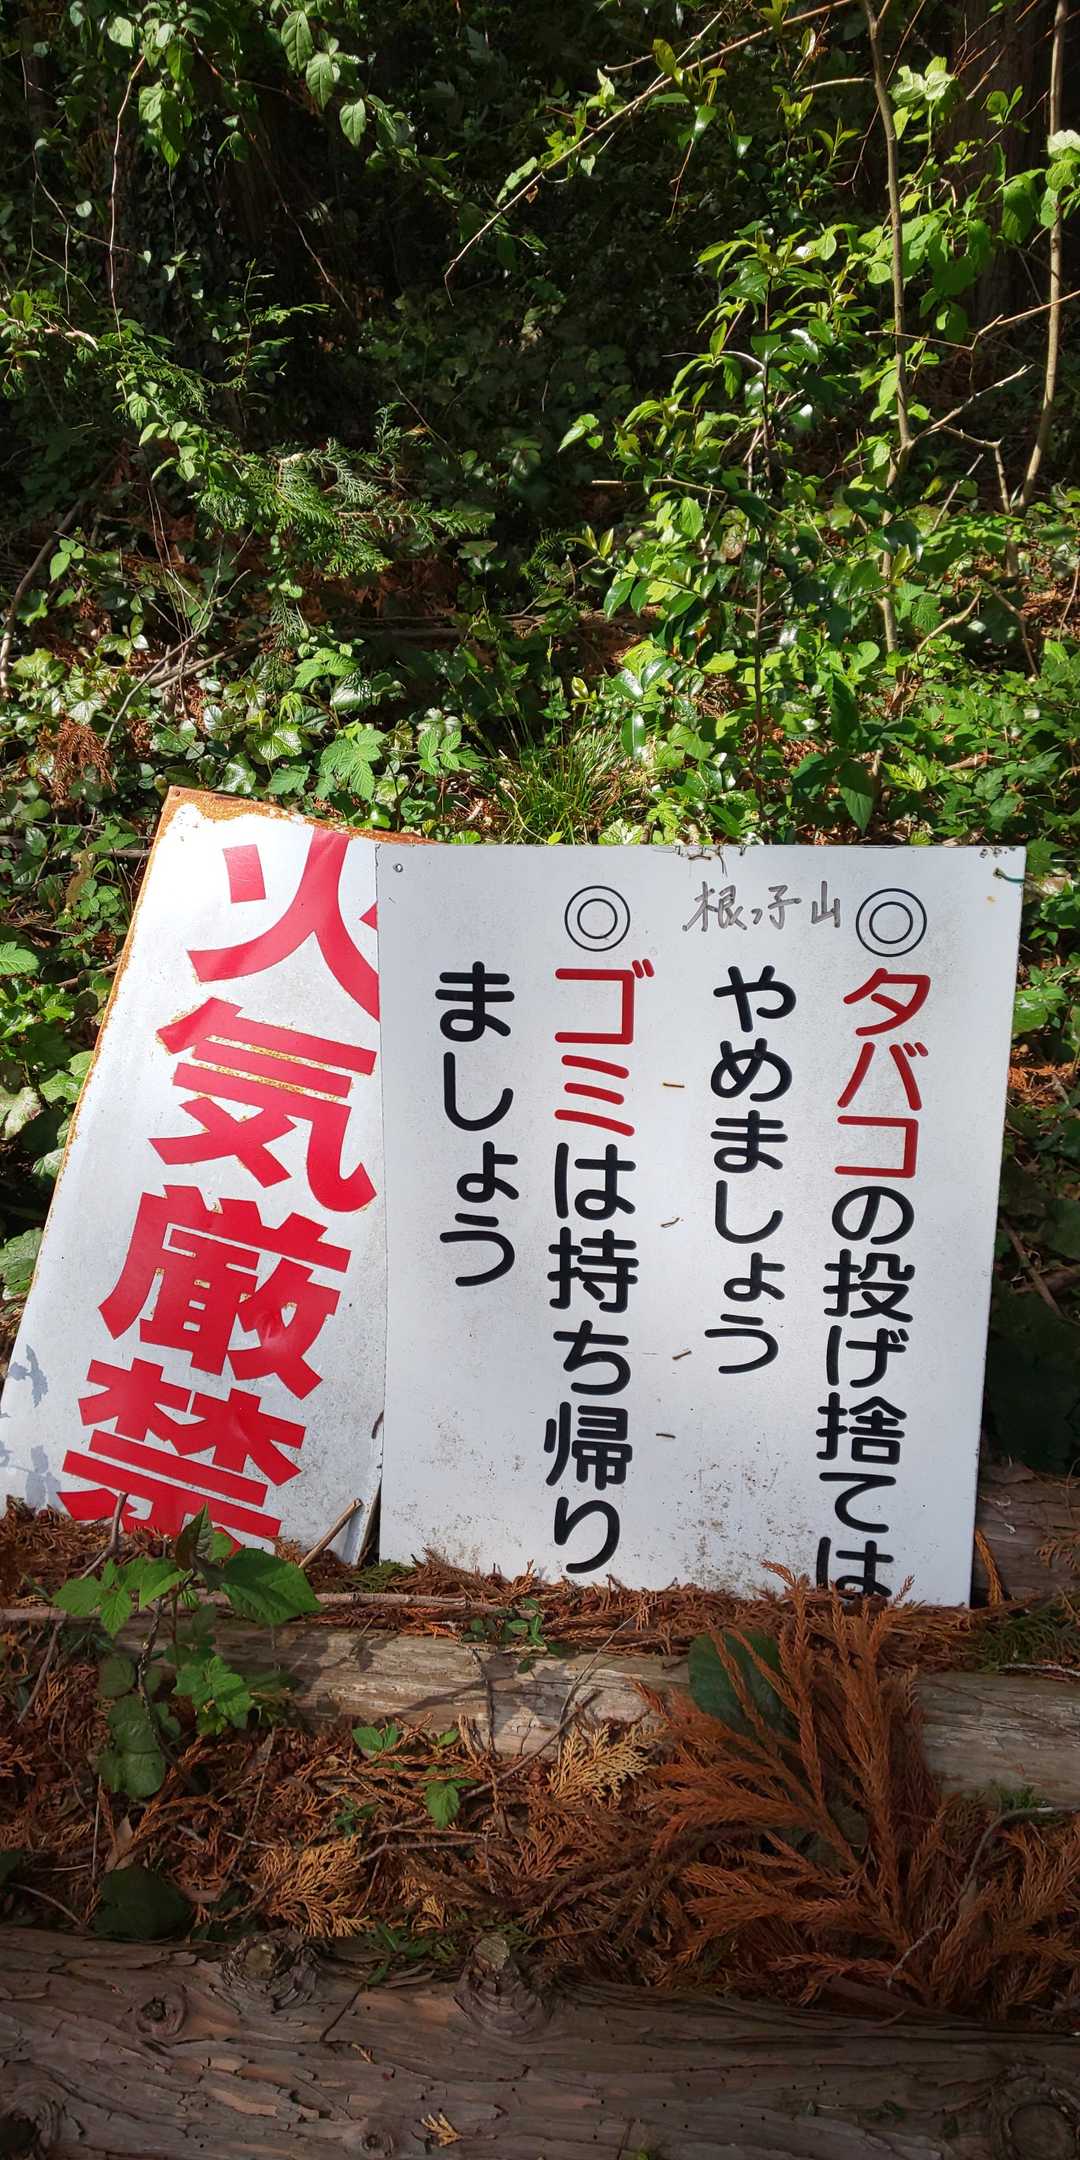 根っ子山
◎タバコの投げ捨ては
やめましょう
◎ゴミは持ち帰り
ましょう
火気厳禁